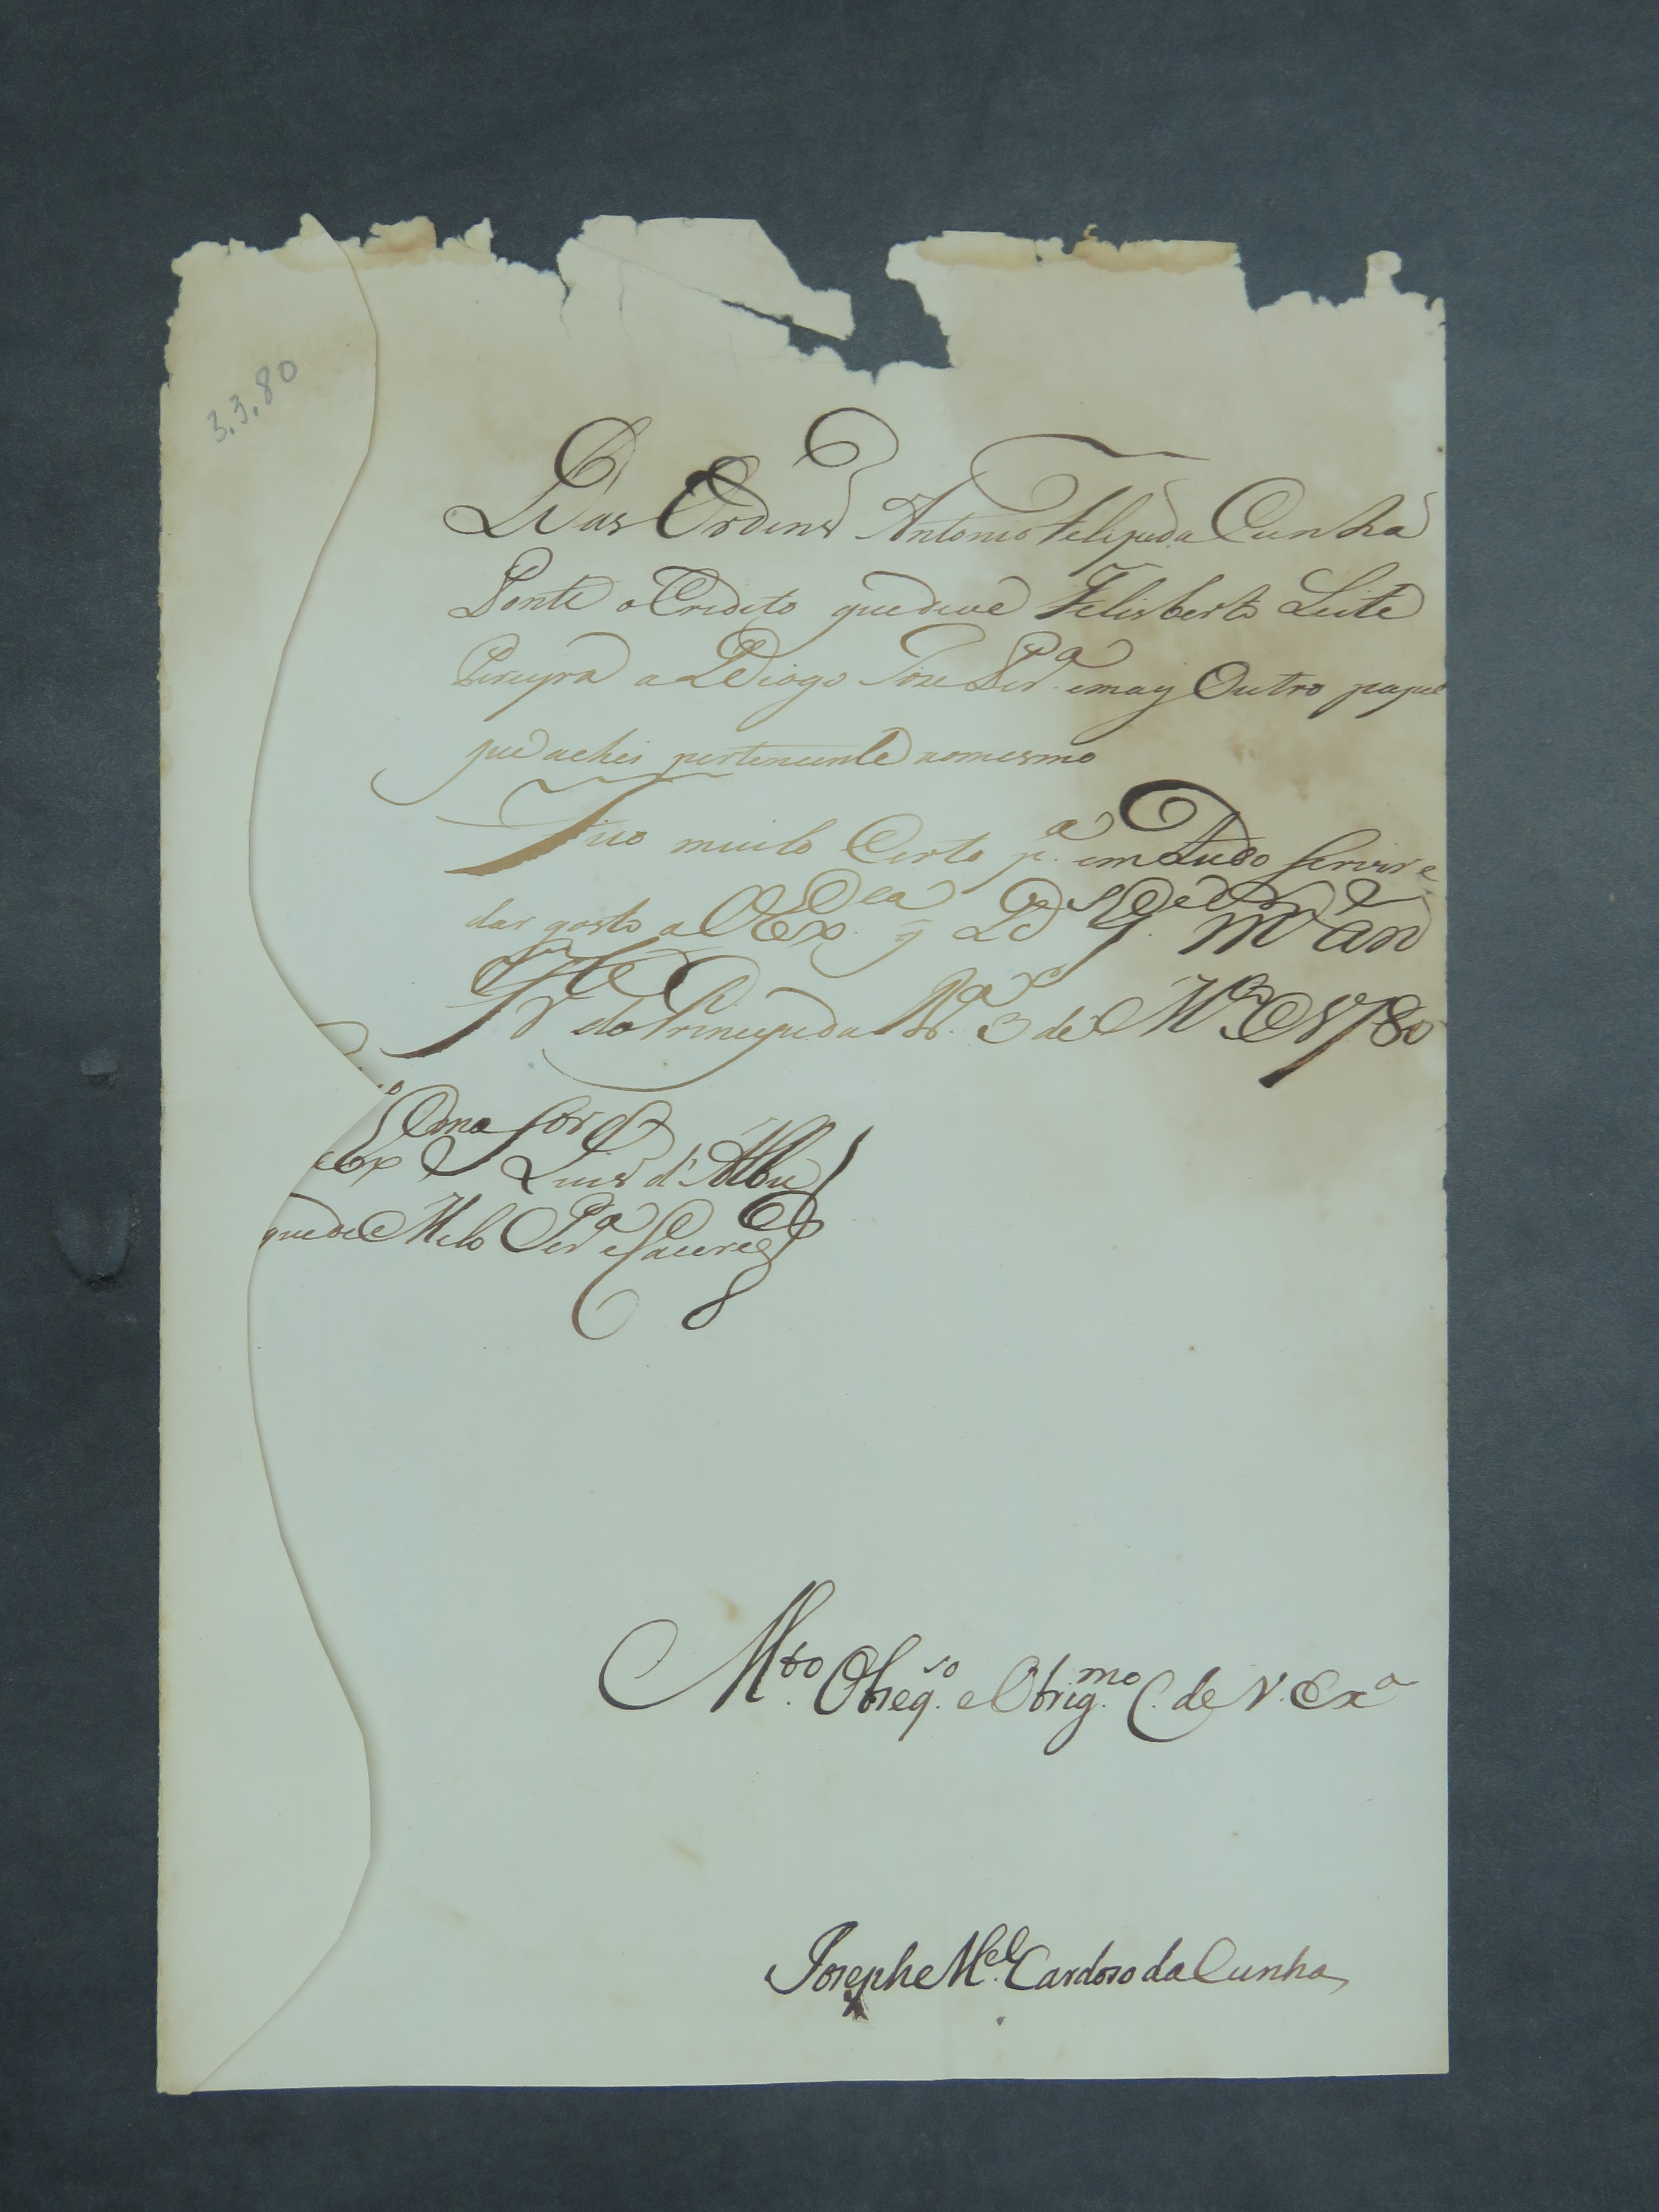 3.3.80
Das Ordens Antonio Felipe da Cunha
Ponte o Credito que deve Felisberto Leite
Pereyra a Diogo Joze Per.ª e may Outro papel
que achei pertencente ao mesmo
Fico muito Certo p.ª em tudo servir e
dar gosto a VEx.ª q D.s g.e m.s an
F.te do Principe da B.ª 3 de M.ço 1780
Snor
Luis d'Albu
que de Melo Per.ª e Caceres
M.to Obzeq.so e Obrig.mo C. de V. Exª
Josephe M.el Cardozo da Cunha